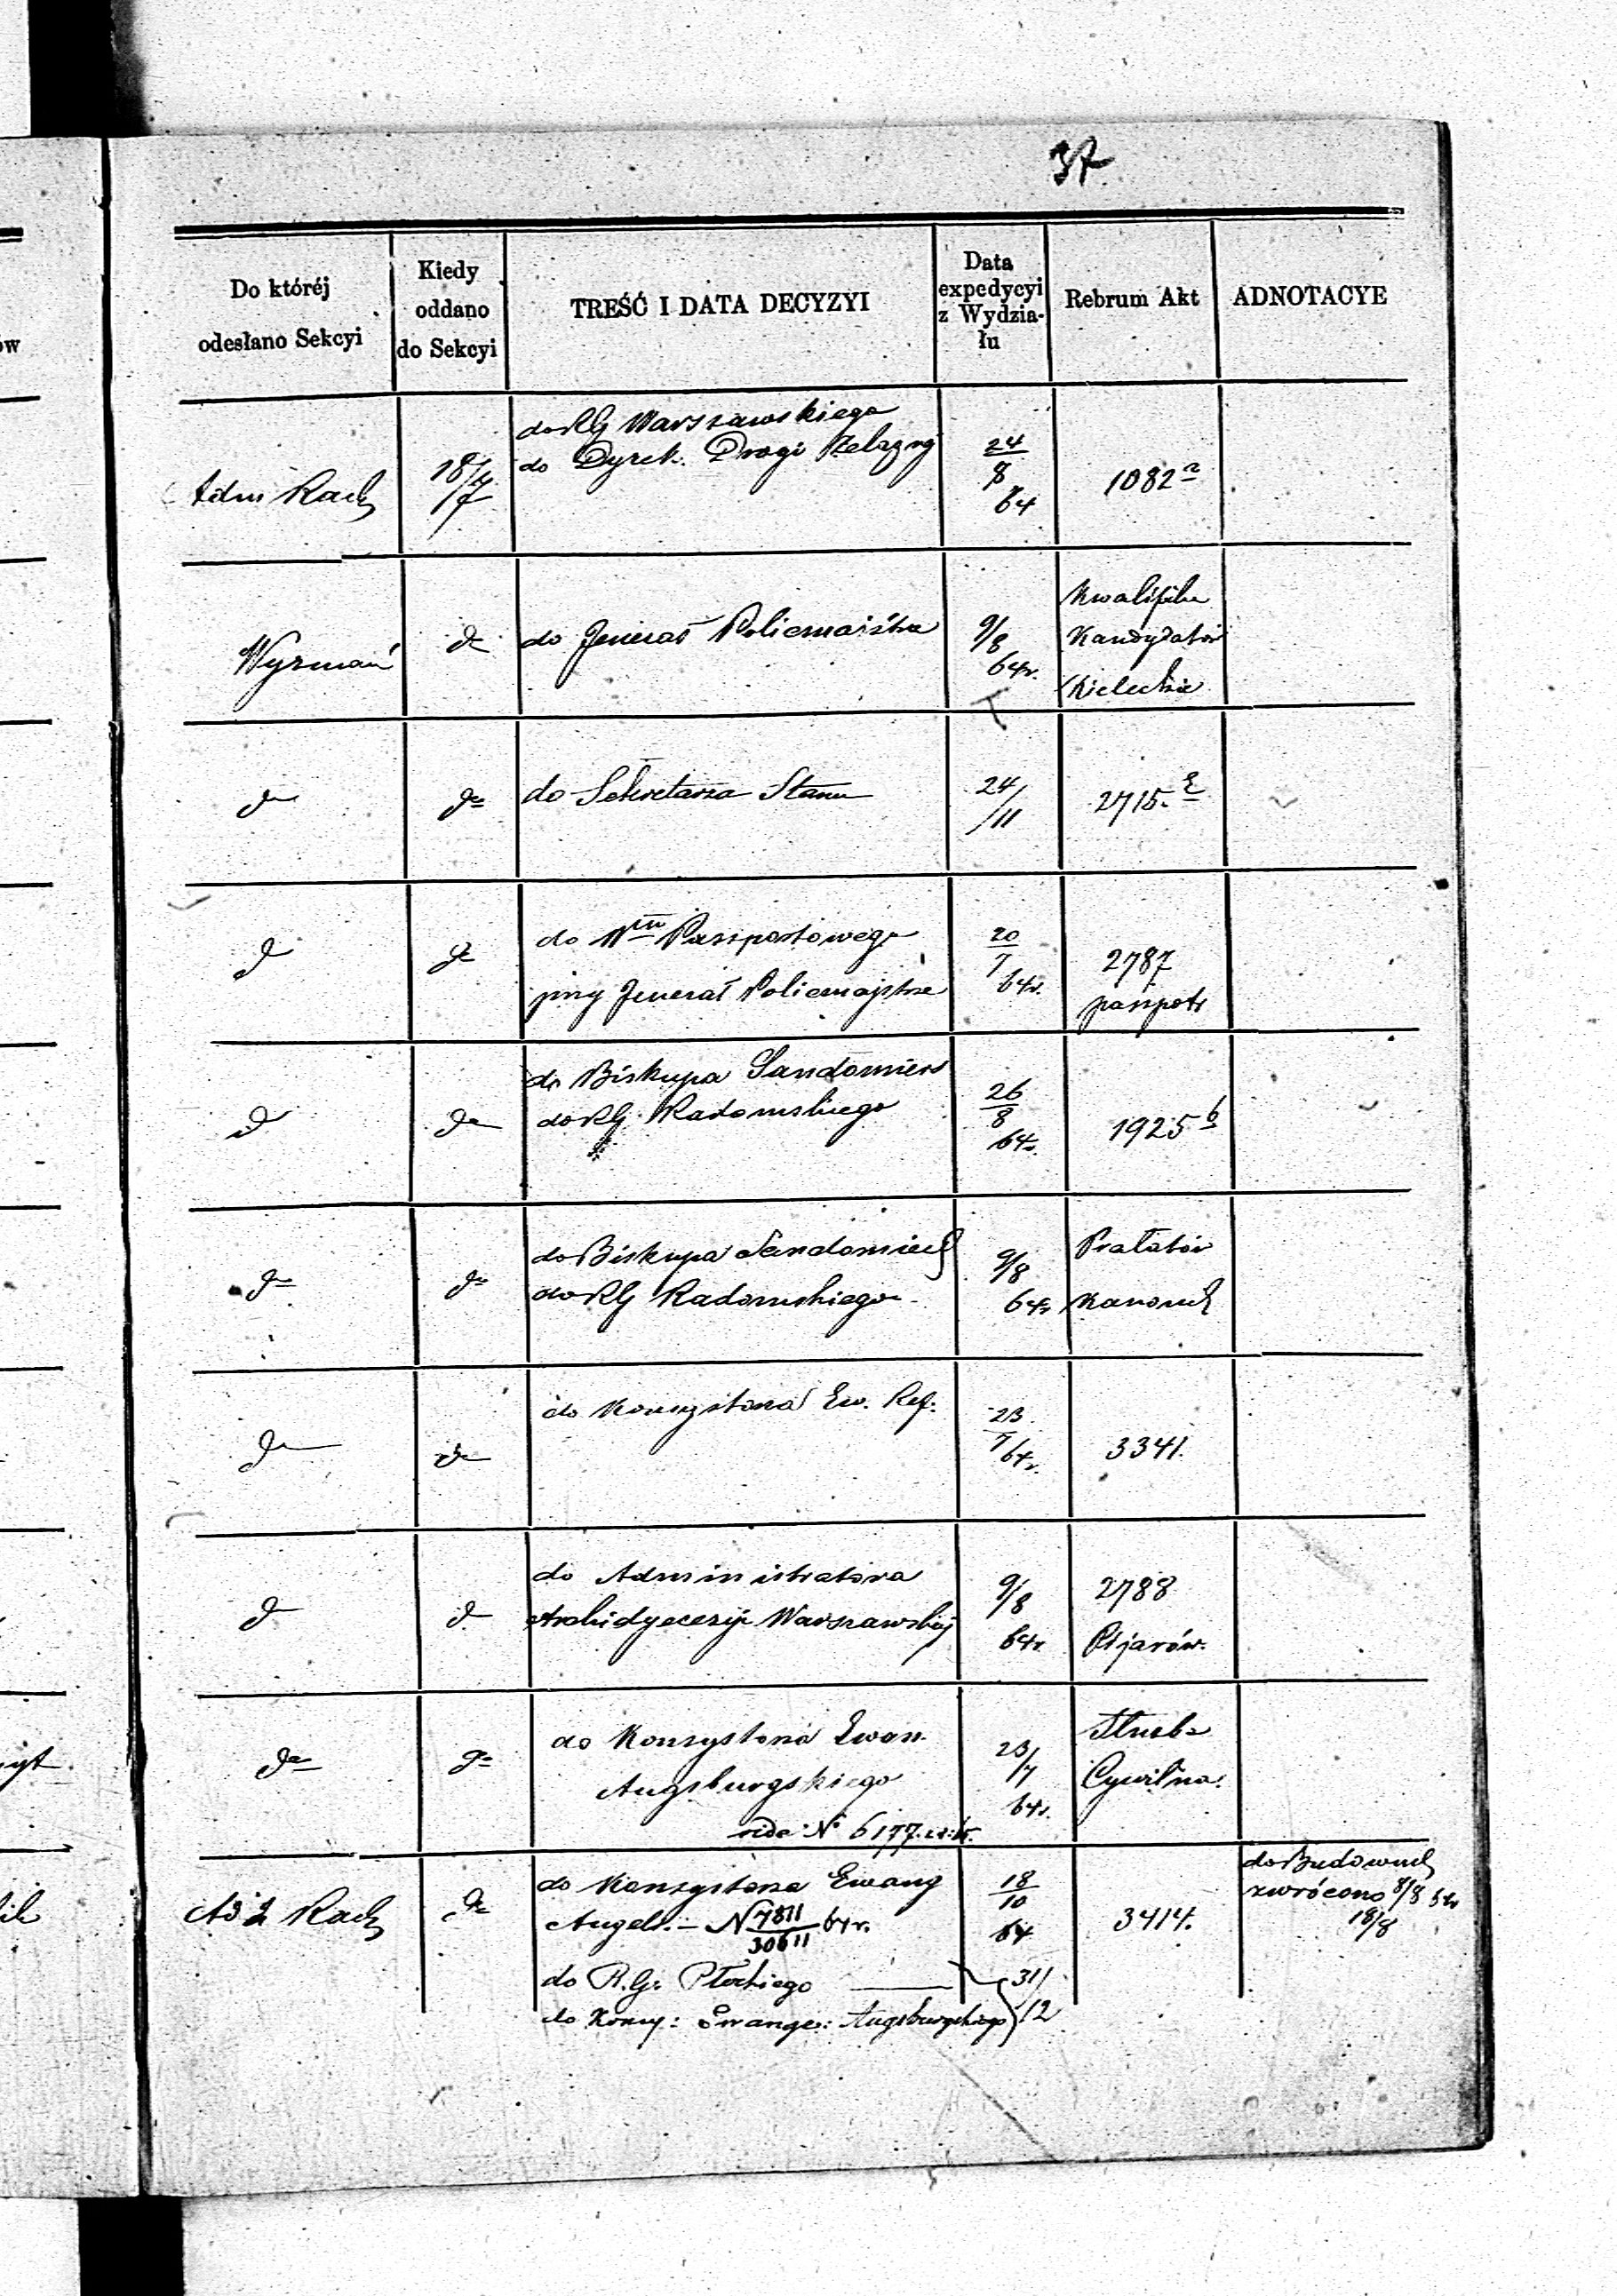 37.
Do któréj
odesłano Sekcyi
Kiedy
oddano
do Sekcyi
TREŚĆ I DATA DECYZYI
Data
expedycyi
z Wydzia-
łu
Rebrum Akt
ADNOTACYE
ów
Adm Rach
18/7
do RG Warszawskiego
do Dyrek. Drogi Żelazny
24
8
64
1082 a
Wyznań
do
do Jenerał Policmajstra
9/8
64r.
Kwalifik
Kandydatów
Kieleckie
do
do
do Sekretarza Stanu
24/11
2715.
do
do
do Paszportowego
przy Jenerał Policmajstrze
20
7
64r.
2787
paszpotr
do
do
do Biskupa Sandomiers
do RG. Radomskiego
26
8
64r.
1925 b
do
do
do Biskupa Sandomier
do RG Radomskiego
9/8
64r
Prałatów
Kanoni
do
do
do Konsystorza Ew. Ref.
23
7/64r.
3341.
do
do
do Administratora
Archidyecezyi Warszawskiéj
9/8
64r
2788
Pijarów.
do
do
do Konsystorza Ewan.
Augsburgskiego
vide: No 6177.
23/7
64r.
Służba
Cywilna.
Rach
do
do Konsystorza Ewang
Augsb.- N 7811/30611 64r.
do R.G. Płockiego
do Konsy: Ewange: Augsburgskiego
18
10
64
31/12
3414.
do Budowni
zwrócono 8/8 64
18/8